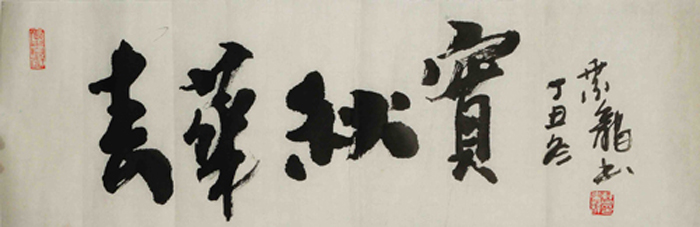 春華秋實
丁丑冬
龍书